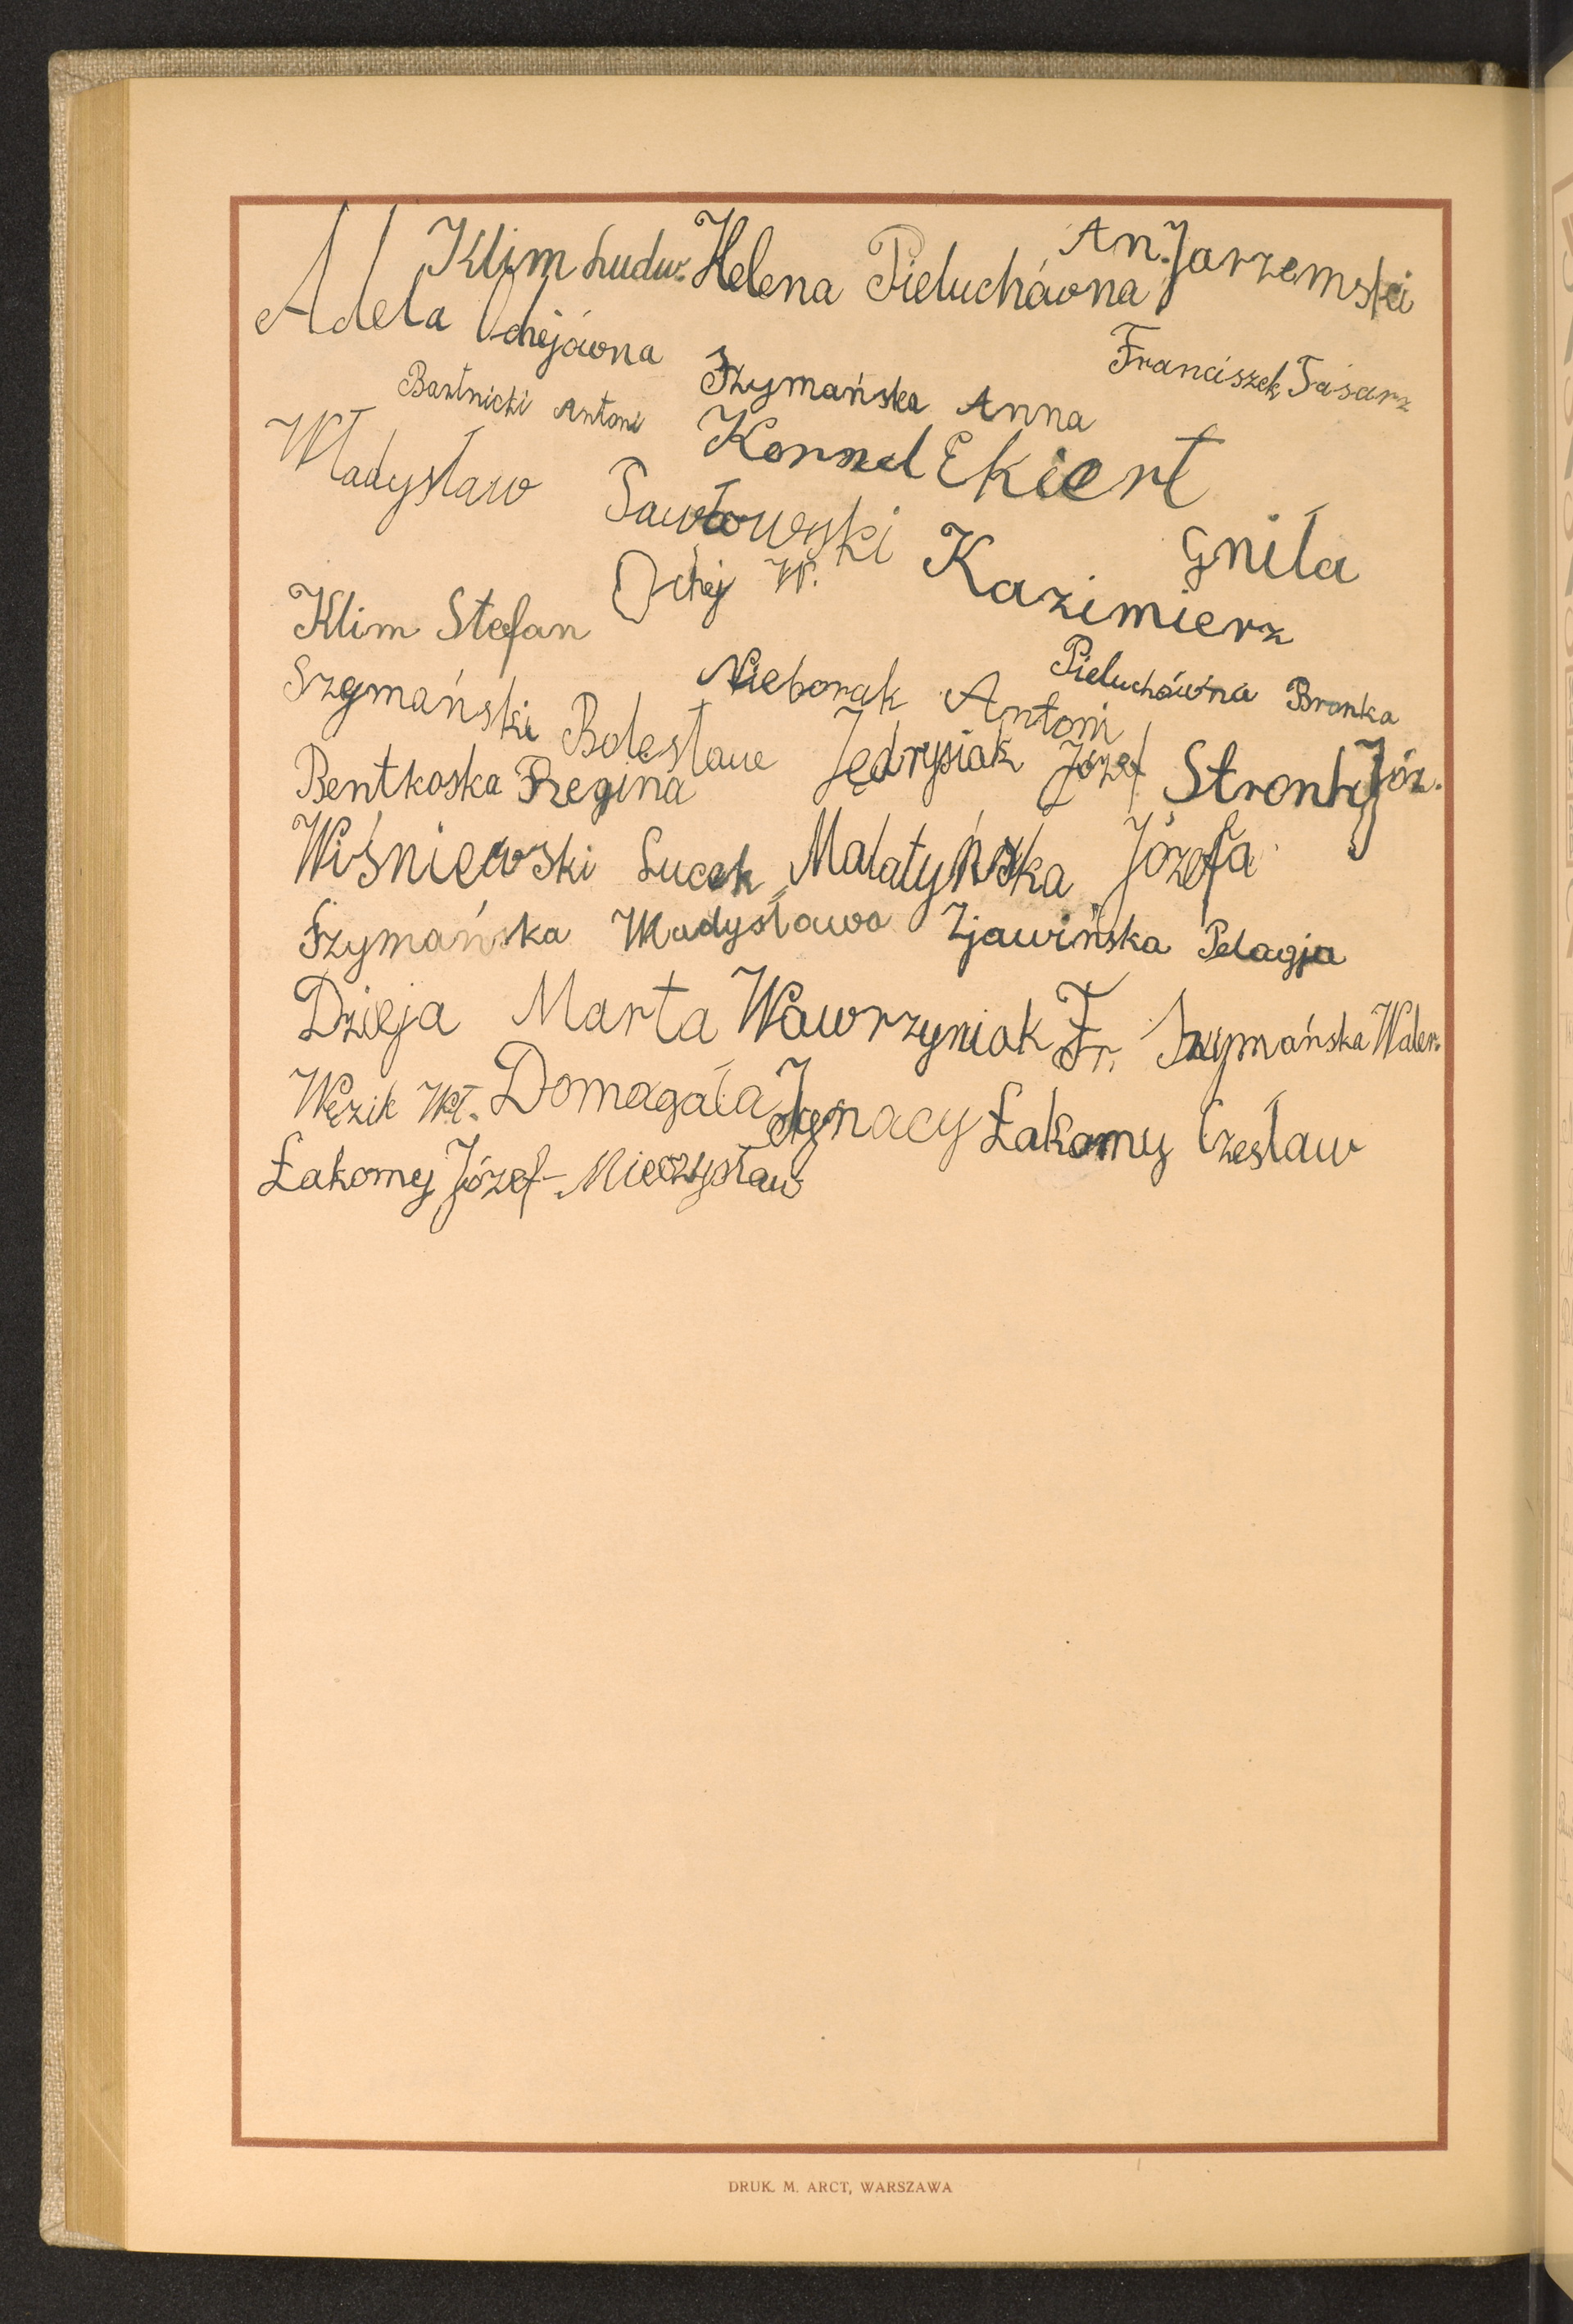 Klim Ludw. Helena Pieluchówna An. Jarzemski
Adela Ochejówna
Franciszek Tasarz
Bartnicki Antoni Szymańska Anna
Kornel Ekiert
Władysław Pawłowski
Gniła Kazimierz
Klim Stefan Ochej W.
Pieluchówna Bronka
Szymański Bolesław Nieborak Antoni
Bentkoska Regina Jędrysiak Józef Stronh Józ.
Wiśniewski Lucek Malatyńska Józefa
Szymańska Władysława Zjawińska Pelagja
Dzieja Marta Wawrzyniak Fr. Szymańska Waler.
Węzik Wł. Domagała Ignacy Łakomy Czesław
Łakomy Józef - Mieczysław
DRUK. M. ARCT, WARSZAWA